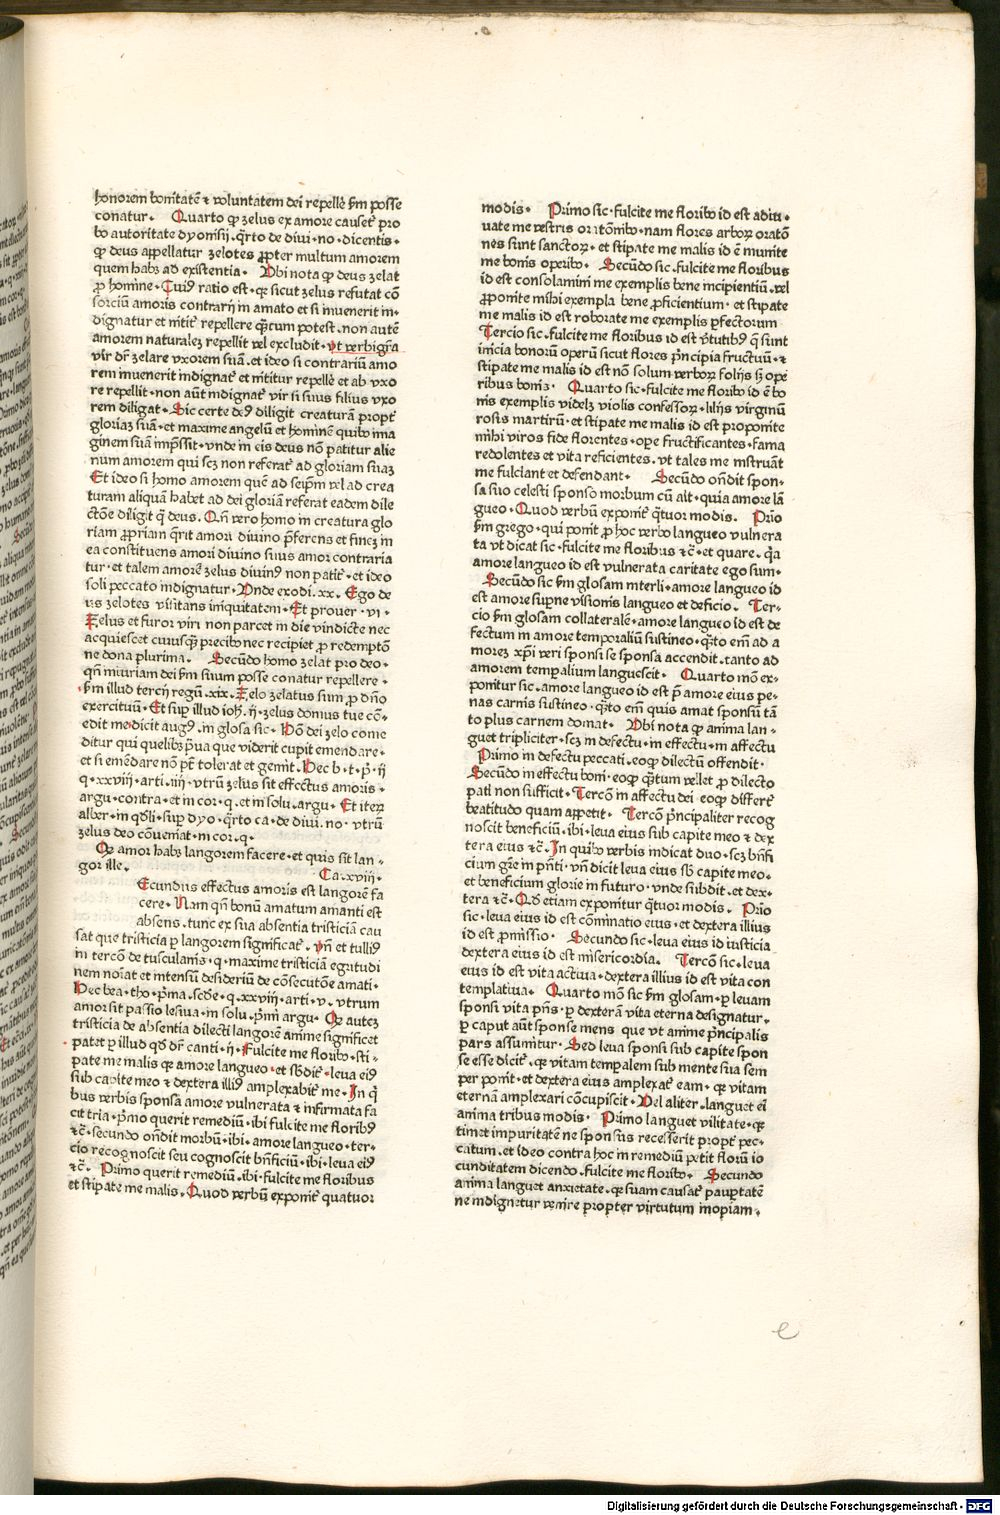 honorem bonitatē ⁊ voluntatem dei repellē ẜm posse
conatur. Quarto ꝙ zelus ex amore causet᷑ pro
bo autoritate dyonisij .q̄rto de diui. no. dicentis.
ꝙ deus appellatur zelotes ꝓpter multum amorem
quem habꝫ ad existentia. Vbi nota ꝙ deus zelat
ꝓ homine. Cuiꝯ ratio est. qꝛ sicut zelus refutat cō
sorciū amoris contrarij in amato et si inuenerit in-
dignatur et nitit᷑ repellere qͣꝫcum potest. non autē
amorem naturaleꝫ repellit vel excludit. vt verbigr̄a
vir dr̄ zelare vxorem suā. et ideo si contrariū amo
rem inuenerit indignat᷑ et nititur repellē et ab vxo
re repellit. non aūt indignat᷑ vir si suus filius vxo
rem diligat. Sic certe deꝯ diligit creaturā propt᷑
gloriaꝫ suā. et maxime angelū et hominē quibꝯ ima
ginem suā imp̄ssit. vnde in eis deus nō patitur alie
num amorem qui scꝫ non referat᷑ ad gloriam suaꝫ
Et ideo si homo amorem quē ad seip̄m vel ad crea
turam aliquā habet ad dei gloriā referat eadem dile
ctōe diligit q̄ deus. Qn̄ vero homo in creatura glo
riam ꝓpriam q̄rit amori diuino p̄ferens et fineꝫ in
ea constituens amori diuino suus amor contraria
tur. et talem amorē zelus diuinꝯ non patit᷑. et ideo
soli peccato indignatur. Vnde exodi. xx. Ego de
us zelotes visitans iniquitatem. Et prouer. vi.
Zelus et furor viri non parcet in die vindicte nec
acquiescet cuiusꝗꝫ precibꝯ nec recipiet ꝓ redemptō
ne dona plurima. Secūdo homo zelat pro deo.
qn̄ iniuriam dei ẜm suum posse conatur repellere.
ẜm illud tercij regū. xix. Zelo zelatus sum ꝓ dn̄o
exercituū. Et sup illud ioh. ij. zelus domus tue cō-
edit me. dicit augꝯ. in glosa sic. Bō dei zelo come
ditur qui quelibꝫ p̄ua que viderit cupit emendare.
et si emēdare nō pt̄ tolerat et gemit. Hec b. t. pͥ. ij
q. xxviij. arti. iiij. vtrū zelus sit effectus amoris.
argu. contra. et in cor. q. et in solu. argu. Et iteꝝ
alber. in qͣdli. sup dyo. q̄rto ca. de diui. no. vtrū
zelus deo cōueniat. in cor. q.
Qꝛ amor habꝫ langorem facere. et quis sit lan-
gor ille. Ca. xviij.
Ecundus effectus amoris est langorē fa
cere. Nam qn̄ bonū amatum amanti est
absens. tunc ex sua absentia tristiciā cau
sat que tristicia ꝑ langorem significat᷑. vn̄ et tulliꝯ
in tercō de tusculanis. q. maxime tristiciā egritudi
nem noīat et intensū desideriū de cōsecutōe amati.
Hec bea. tho. pͥma. scd̄e. q. xxviij. arti. v. vtrum
amor sit passio lesiua. in solu. pͥmi argu. Qꝛ auteꝫ
tristicia de absentia dilecti langorē anime significet
patet ꝑ illud qd̄ dr̄ canti. ij. Fulcite me floribꝯ. sti-
pate me malis qꝛ amore langueo. et sb̄dit᷑. leua eiꝯ
sub capite meo ⁊ dextera illiꝯ amplexabit᷑ me. In qͥ
bus verbis sponsa amore vulnerata ⁊ infirmata fa
cit tria. pͥmo querit remediū. ibi fulcite me floribꝯ
⁊c̄. secundo on̄dit morbū. ibi. amore langueo. ter-
cio recognoscit seu cognoscit bn̄ficiū. ibi. leua eiꝯ
⁊c̄. Primo querit remediū. ibi. fulcite me floribus
et stipate me malis. Quod verbū exponit᷑ quatuor
modis. Primo sic. fulcite me floribꝯ id est adiu-
uate me vestris orōnibꝯ. nam flores arboꝝ oratō
nes sunt sanctoꝝ. et stipate me malis id ē munite
me bonis operibꝯ. Secūdo sic. fulcite me floribus
id est consolamini me exemplis bene incipientiū. vel
ꝓponite mihi exempla bene ꝓficientium. et stipate
me malis id est roborate me exemplis ꝑfectorum
Tercio sic. fulcite me floribus id est v̓tutibꝯ q̄ sunt
inicia bonorū operū sicut flores p̄ncipia fructuū. ⁊
stipate me malis id est nō solum verboꝝ folijs sꝫ ope
ribus bonis. Quarto sic. fulcite me floribꝯ id ē bo
nis exemplis videlꝫ violis confessoꝝ. lilijs virginū
rosis martirū. et stipate me malis id est proponite
mihi viros fide florentes. oꝑe fructificantes. fama
redolentes et vita reficientes. vt tales me instruāt
me fulciant et defendant. Secūdo on̄dit spon-
sa suo celesti sponso morbum cū ait. quia amore lā
gueo. Quod verbū exponit᷑ qͣtuor modis. Primo
ẜm grego. qui ponit ꝓ hoc verbo langueo vulnera
ta vt dicat sic. fulcite me floribus ⁊c̄. et quare. qͣa
amore langueo id est vulnerata caritate ego sum.
Secūdo sic ẜm glosam interli. amore langueo id
est amore suꝑne visionis langueo et deficio. Ter-
cio ẜm glosam collateralē. amore langueo id est de
fectum in amore temporaliū sustineo. qͣnto em̄ ad a
moreꝫ xp̄i veri sponsi se sponsa accendit. tanto ad
amorem tempalium languescit. Quarto mō ex-
ponitur sic. amore langueo id est ꝓ amore eius pe-
nas carnis sustineo. qͣnto em̄ quis amat sponsū tā
to plus carnem domat. Vbi nota ꝙ anima lan-
guet tripliciter. scꝫ in defectu. in effectu. in affectu
Primo in defectu peccati. eoꝙ dilectū offendit.
Secūdo in effectu boni. eoꝙ qͣntum vellet ꝓ dilecto
pati non sufficit. Tercō in affectu dei eoꝙ differt᷑
beatitudo quam appetit. Tercō p̄ncipaliter recog
noscit beneficiū. ibi. leua eius sub capite meo ⁊ dex
tera eius ⁊c̄. In quibꝯ verbis indicat duo. scꝫ bn̄fi
cium gr̄e in pn̄ti. vn̄ dicit leua eius sb̄ capite meo.
et beneficium glorie in futuro. vnde subdit. et dex-
tera ⁊c̄. Qd̄ etiam exponitur qͣtuor modis. Primo
sic. leua eius id est cōminatio eius. et dextera illius
id est ꝓmissio. Secundo sic. leua eius id iusticia
dextera eius id est misericordia. Tercō sic. leua
eius id est vita actiua. dextera illius id est vita con
templatiua. Quarto mō sic ẜm glosam. ꝑ leuam
sponsi vita pn̄s. ꝑ dexterā vita eterna designatur.
ꝑ caput aūt sponse mens que vt anime p̄ncipalis
pars assumitur. Sed leua sponsi sub capite spon
se esse dicit᷑. qꝛ vitam tempalem sub mente sua sem
per ponit. et dextera eius amplexat᷑ eam. qꝛ vitam
eternā amplexari cōcupiscit. Vel aliter. languet em̄
anima tribus modis. Primo languet vilitate. qꝛ
timet impuritatē ne sponsus recesserit propt᷑ pec-
catum. et ideo contra hoc in remediū petit florū io
cunditatem dicendo. fulcite me floribꝯ. Secundo
anima languet anxietate. qꝛ suam causat᷑ paupertatē
ne indignetur venire propter virtutum inopiam.
e
Digitalisierung gefördert durch die Deutsche Forschungsgemeinschaft - DFG